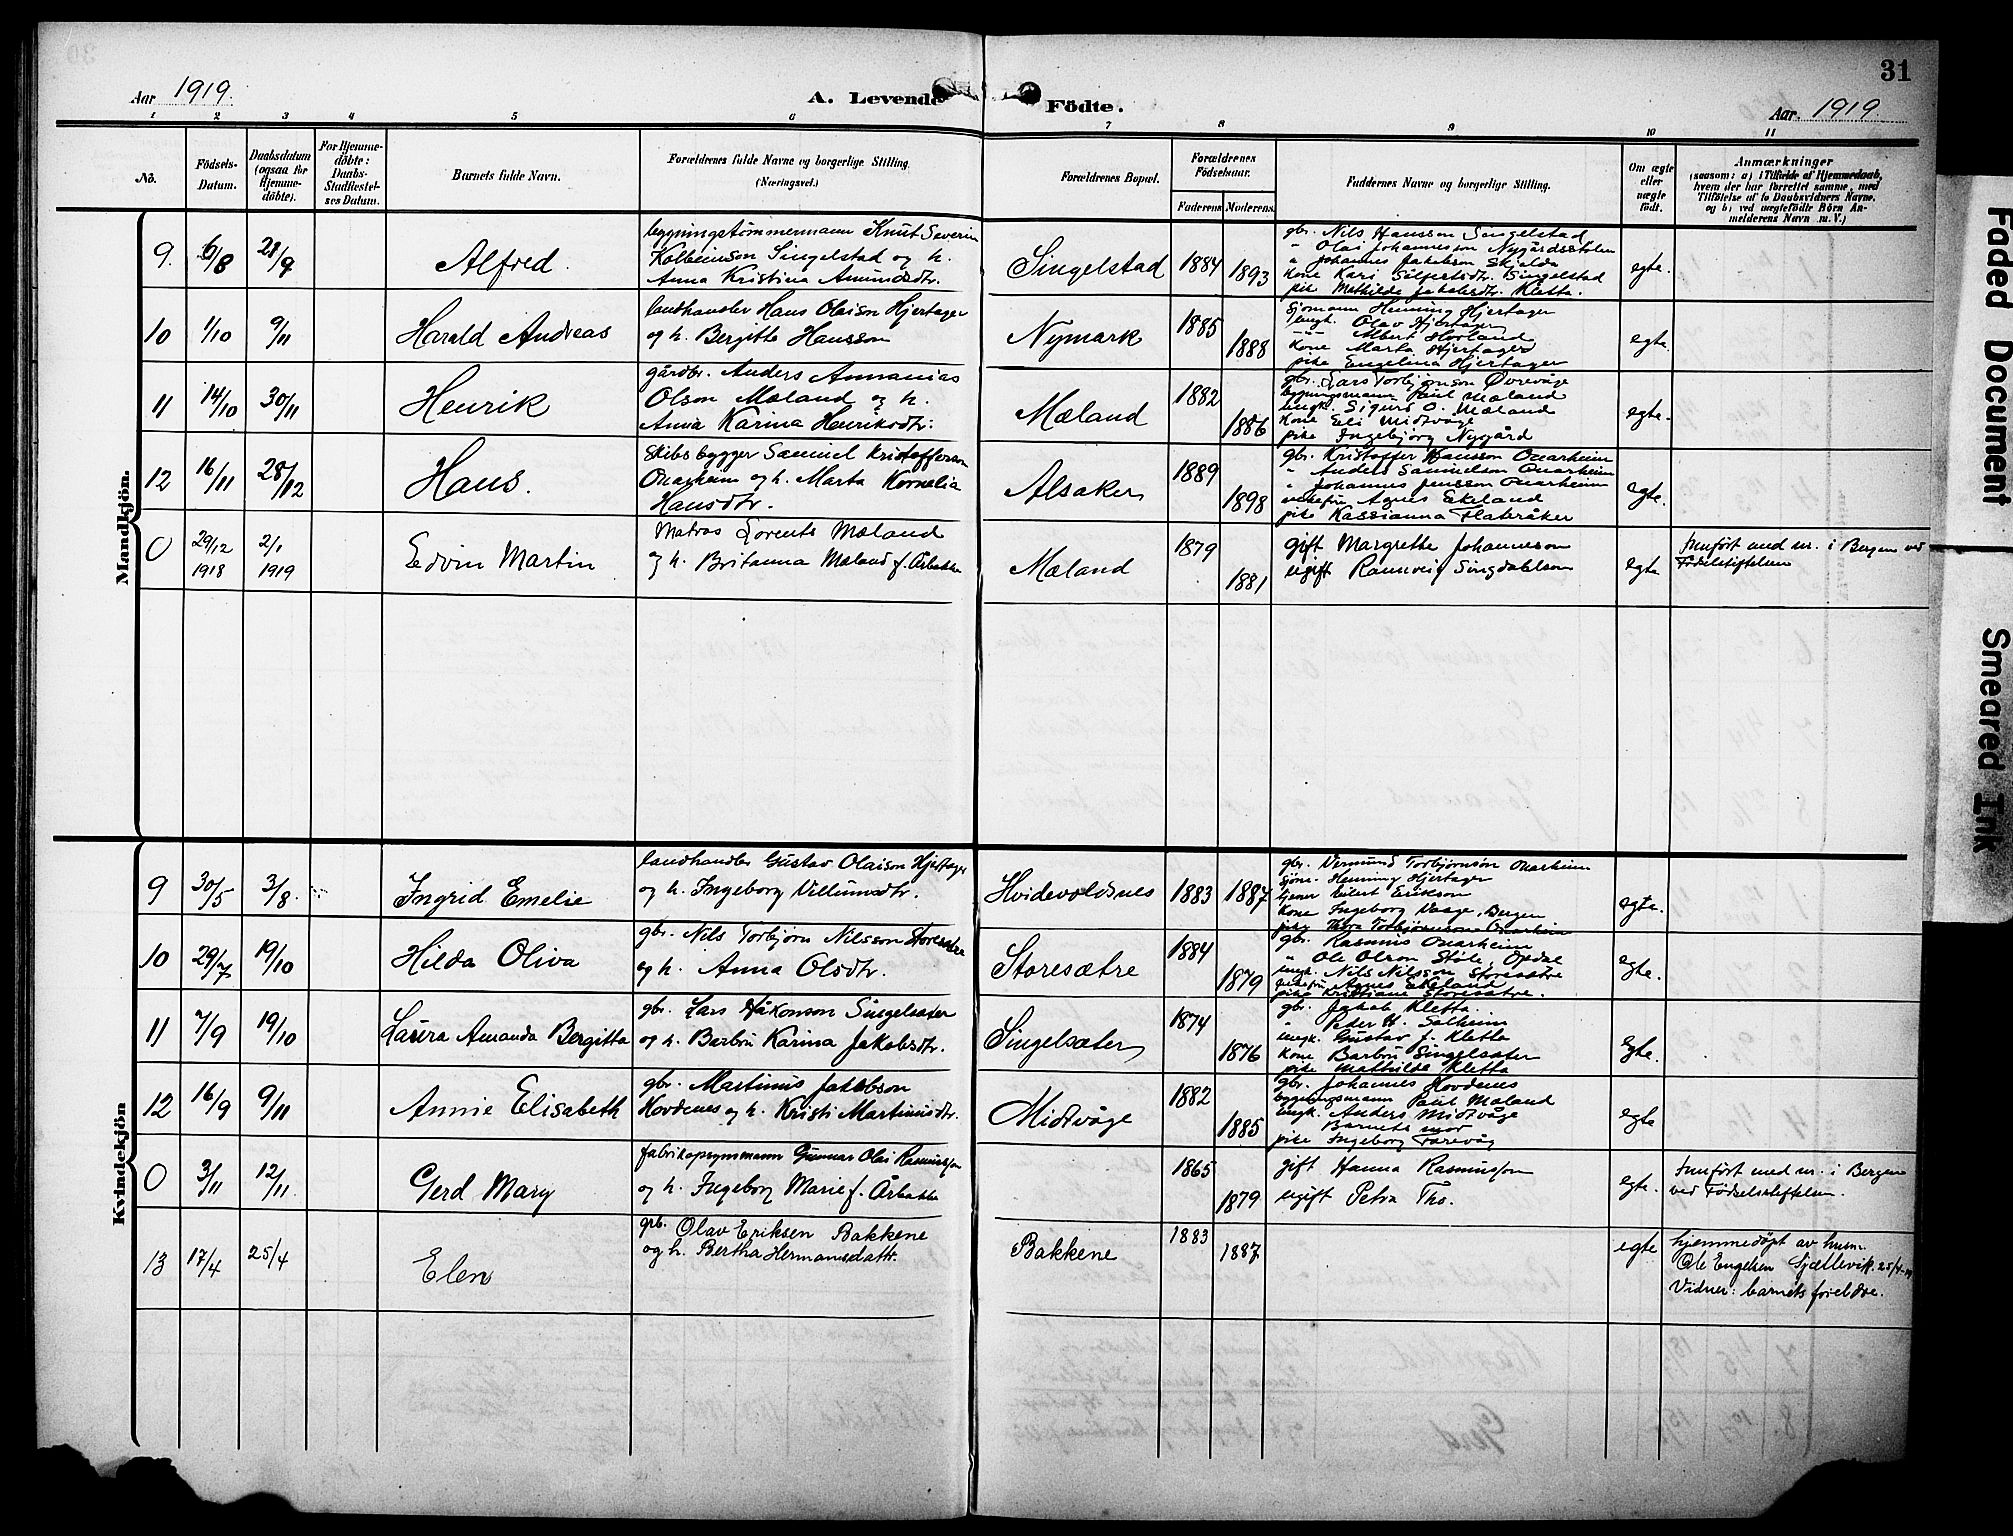 31
Aar 1919.
A. Levende Födte.
Aar 1919.
1 2 3 4 5 6 7 8 9 10 11
No.
Födsels-
Datum.
Daabsdatum
(ogsaa for
Hjemme-
döbte).
For Hjemme-
döbte:
Daabs-
Stadfæstel-
ses Datum.
Barnets fulde Navn.
Forældrenes fulde Navne og borgerlige Stilling.
(Næringsvei.)
Forældrenes Bopæl.
Forældrenes
Födselsaar.
Faderens Moderens
Faddernes Navne og borgerlige Stilling.
Om ægte
eller
uægte
födt.
Anmærkninger
(saasom: a) i Tilfælde af Hjemmedaab,
hvem der har forrettet samme, med
Tilföielse af to Daabsvidners Navne,
og b) ved uægtefödte Börn An-
melderens Navn m. V.)
Mandkjön.
9. 6/8 28/9 Alfred.
bygningstømmermann Knut Severin
Kolbeinson Singelstad og h.
Anna Kristina Amundsdtr.
Singelstad 1884 1893
gbr. Nils Hansson Singelstad
" Olai Johannesson Nygårdsstølen
" Johannes Jakobson Skjelda
kone Kari Sjlfertsdtr. Singelstad
pike Mathilde Jakobsdtr. Kletta.
egte.
10 1/10 9/11 Harald Andreas
landhandler Hans Olaison Hjertager
og h. Bergitte Hansson
Nymark 1885 1888
Sjømann Henning Hjertager
ungk. Olav Hjertager
"-" Albert Horland
kone Marta Hjertager
pike Engelina Hjertager
egte.
11 14/10 30/11 Henrik
gårdbr. Anders Annanias
Olson Mæland og h.
Anna Karina Henriksdtr.
Mæland 1882 1886
gbr. Lars Torbjørnson Øvrevåge
bygningsmann Paul Mæland
ungk. Sigurd O. Mæland
kone Eli Midtvåge
pike Ingebjørg Nygård
egte.
12 16/11 28/12 Hans.
Skibsbygger Samuel Kristofferson
Ovarheim og h. Marta Kornelia
Hansdtr.
Alsaker 1889 1898
gbr. Kristoffer Hansson Ovarheim
" Anders Samuelson Ovarheim
" Johannes Jensson Ovarheim
enkefru Agnes Ekeland
pike Kassianna Flateråker
egte.
0 29/12 1918 2/1 1919 Edvin Martin
Matros Lorents Mæland
og h. Britanna Mæland f. Årbakke
Mæland 1879 1881
gift Margrethe Johannesson
ugift Rannveig Singdahlsen
egte
Innført med nr. i Bergen ved
Fødselstiftelsen
Kvindekjön
9 30/5 3/8. Ingrid Emelie
landhandler Gustav Olaison Hjertager
og h. Ingeborg Villumsdtr.
Hvidevoldsnes 1883 1887
gbr. Vermund Torbjørnson Ovarheim
Sjøm. Henning Hjertager
tjener Eilert Erikson
kone Ingeborg Vaage, Bergen
pike Thora Torbjørnsone Ovarheim
egte.
10 29/7 19/10 Hilda Oliva
gbr. Nils Torbjørn Nilsson Storesætre
og h. Anna Olsdtr.
Storesætre 1884 1879
gbr. Rasmus Ovarheim
" Ole Olson Støle, Opdal
ungk. Nils Nilsson Storesætre
enkefru Agnes Ekeland
pike Kristiane Storesætre.
egte.
11 7/9 19/10 Laura Amanda Bergitta
gbr. Lars Håkonson Singelsæter
og h. Barbru Karina Jakobsdtr.
Singelsæter 1874 1876
gbr. Jakob Kletta.
" Peder H. Solheim
ungk. Gustav J. Kletta
kone Barbru Singelsæter
pike Mathilde Kletta
egte.
12 16/9 9/11 Annie Elisabeth
gbr. Martinus Jakobson
Hovdenes og h. Kristi Martinusdtr.
Midtvåge 1882 1885
gbr. Johannes Hovdenes
bygningsmann Paul Mæland
ungk. Anders Midtvåge
Barnets mor
pike Ingeborg Torevåg
egte
0 3/11 12/11. Gerd Mary
fabrikopsynsmann Gunnar Olai Rasmussen
og h. Ingeborg Marie f. Årbakke
1865 1879
gift Hanna Rasmussen
ugift Petra Tho.
egte.
Innført med nr. i Bergen
ved Fødselsstiftelsen.
13 17/4 25/4 Elen
grb. Olav Eriksen Bakkene
og h. Bertha Hermansdattr.
Bakkene 1883 1887
egte
hjemmedøpt av husm.
Ole Engelsen Sjællevik 25/4-19
Vidner: barnets foreldre.
Faded Document
Smeared Ink